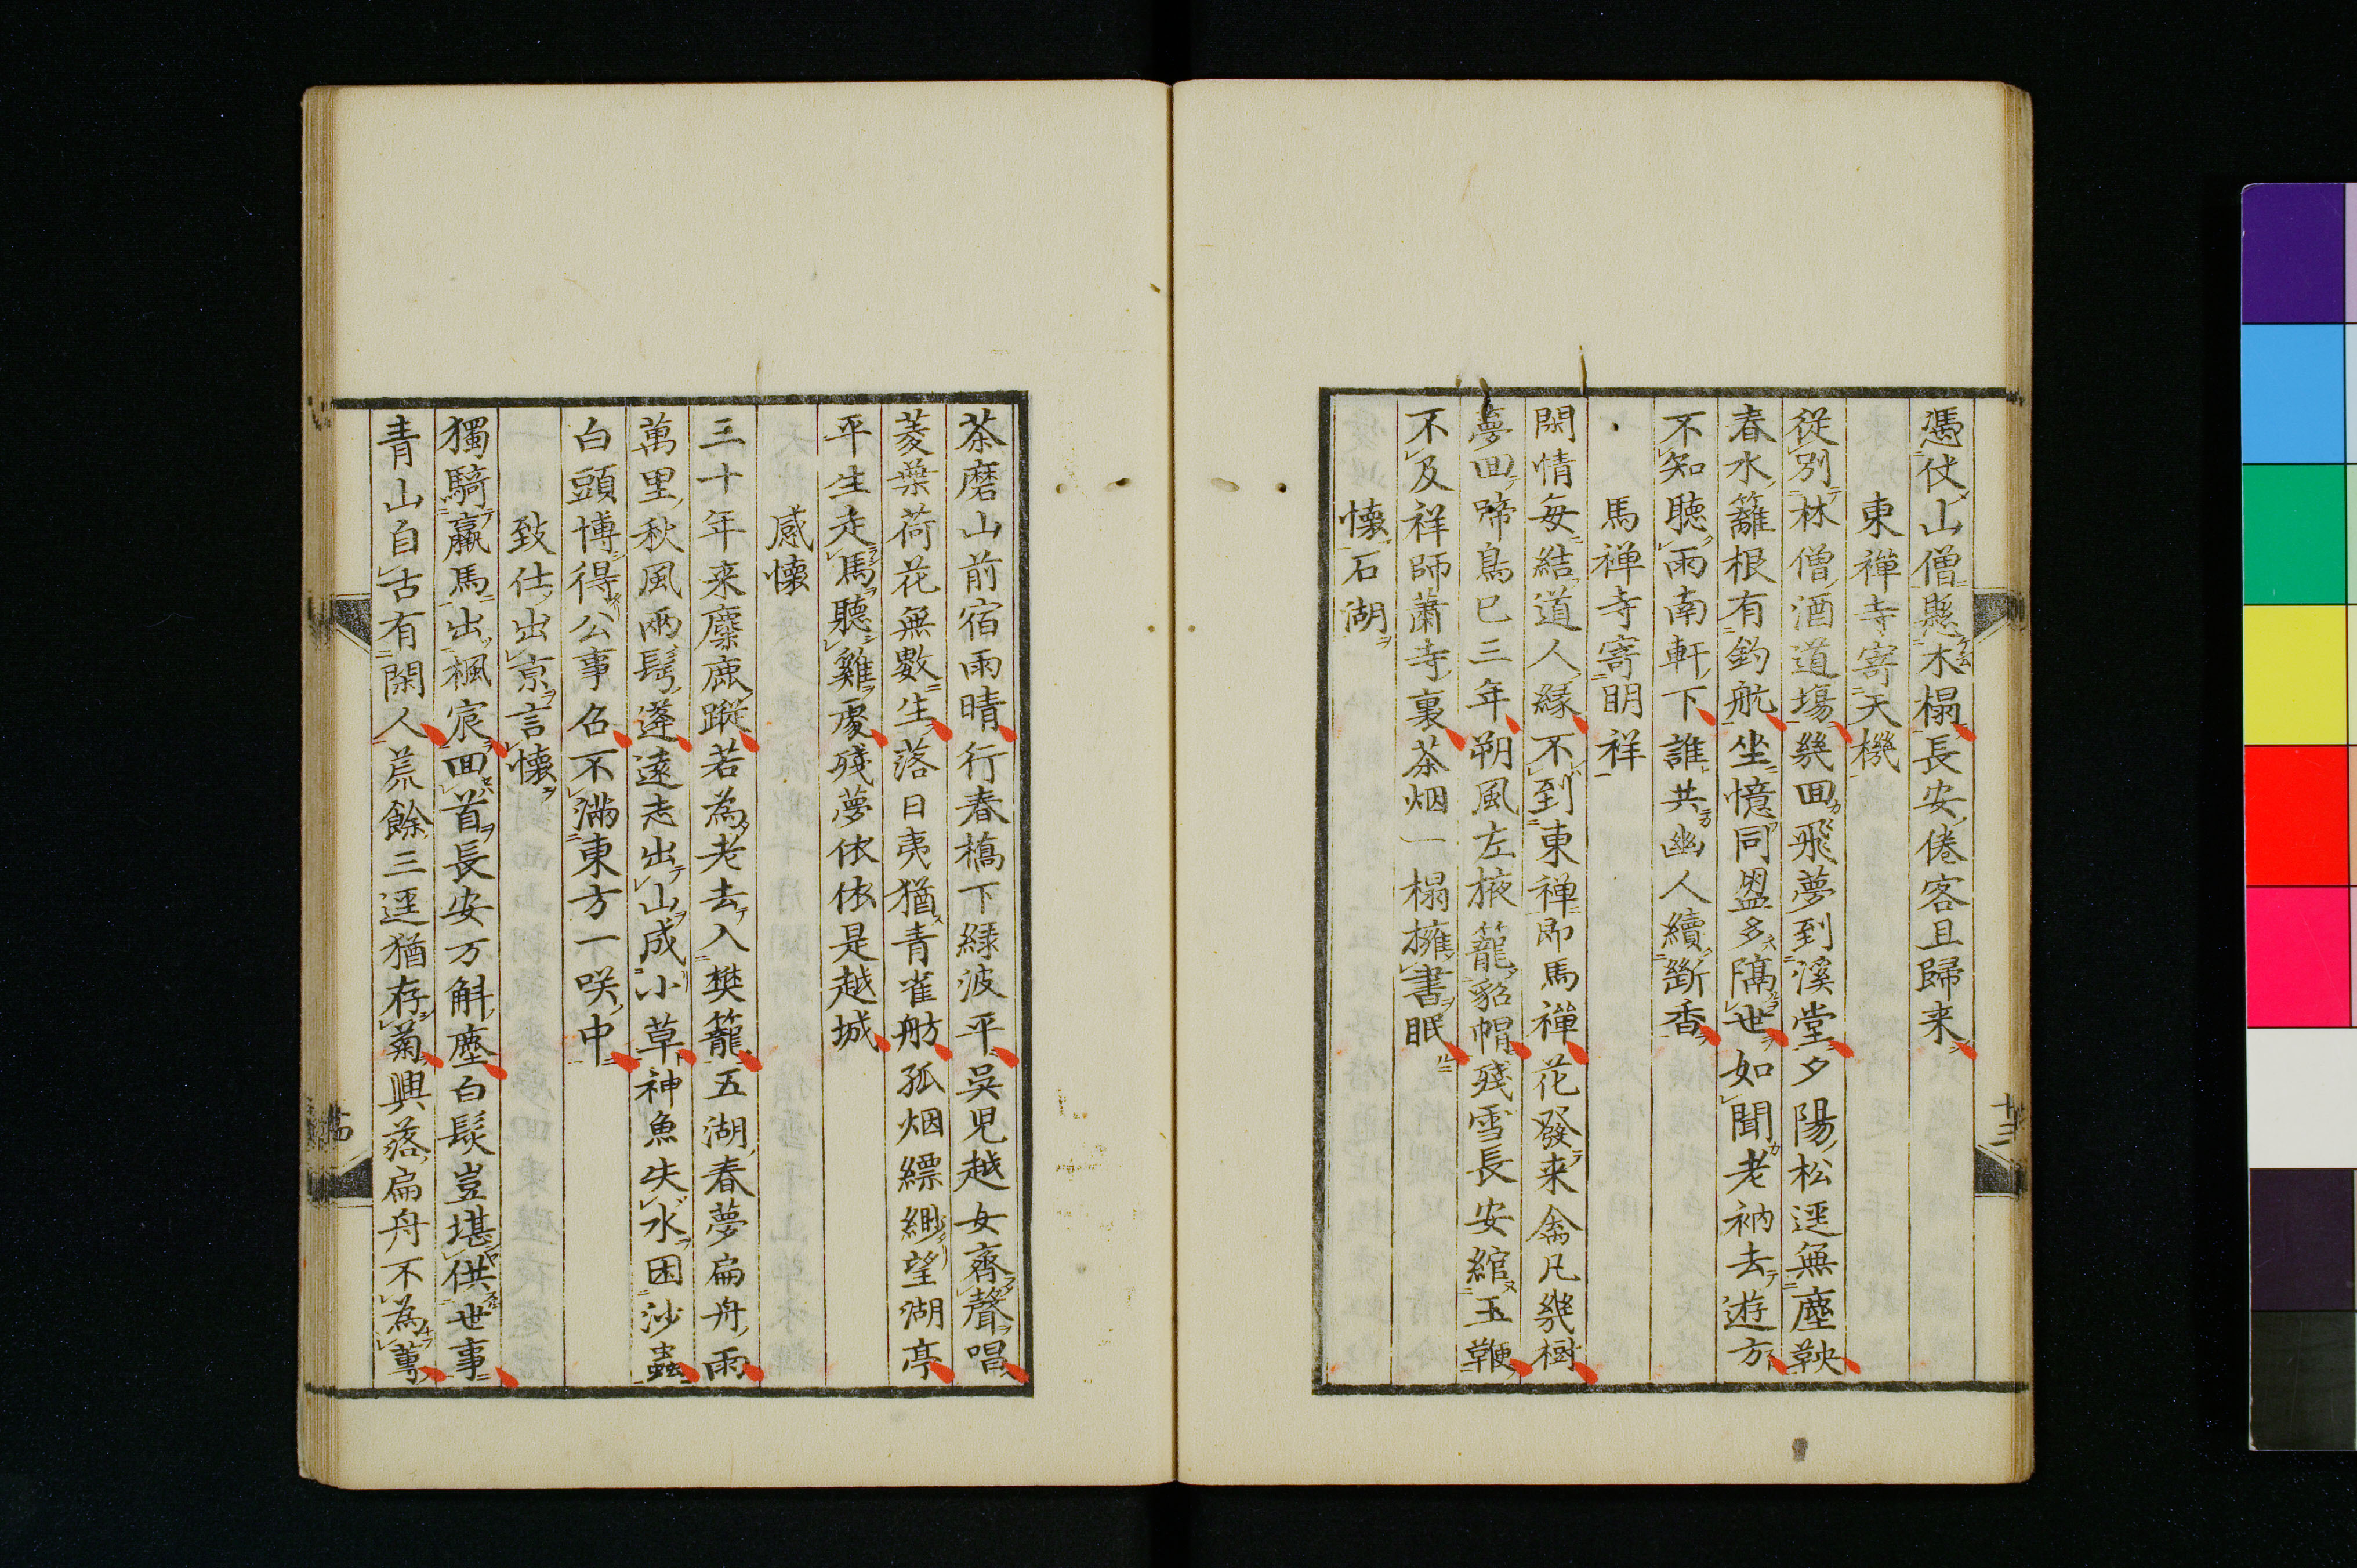 憑仗山僧懸木榻長安倦客且歸来
東禅寺寄天機
従別林僧酒道塲幾回飛夢到溪堂夕陽松逕無塵鞅
春水籬根有釣航坐憶同盟多隔世如聞老衲去遊方
不知聴雨南軒下誰共幽人續斷香
馬禅寺寄明祥
閑情每結道人縁不到東禅即馬禅花發来禽凡幾樹
夢回啼鳥已三年朔風左掖籠貂帽殘雪長安綰玉鞭
不及祥師蕭寺裏茶烟一榻擁書眠
懐石湖
十三
茶磨山前宿雨晴行春橋下緑波平吳児越女齊聲唱
菱葉荷花無數生落日夷猶青雀舫孤烟縹緲望湖亭
平生走馬聽雞處殘夢依依是越城
感懐
三十年来麋鹿蹤若為老去入樊籠五湖春夢扁舟雨
萬里秋風兩鬂蓬遠志出山成小草神魚失水困沙蟲
白頭博得公事召不滿東方一咲中
致仕出京言懐
獨騎羸馬出楓宸回首長安万斛塵白髮豈堪供世事
青山自古有閑人荒餘三逕猶存菊興落扁舟不為蓴
十四